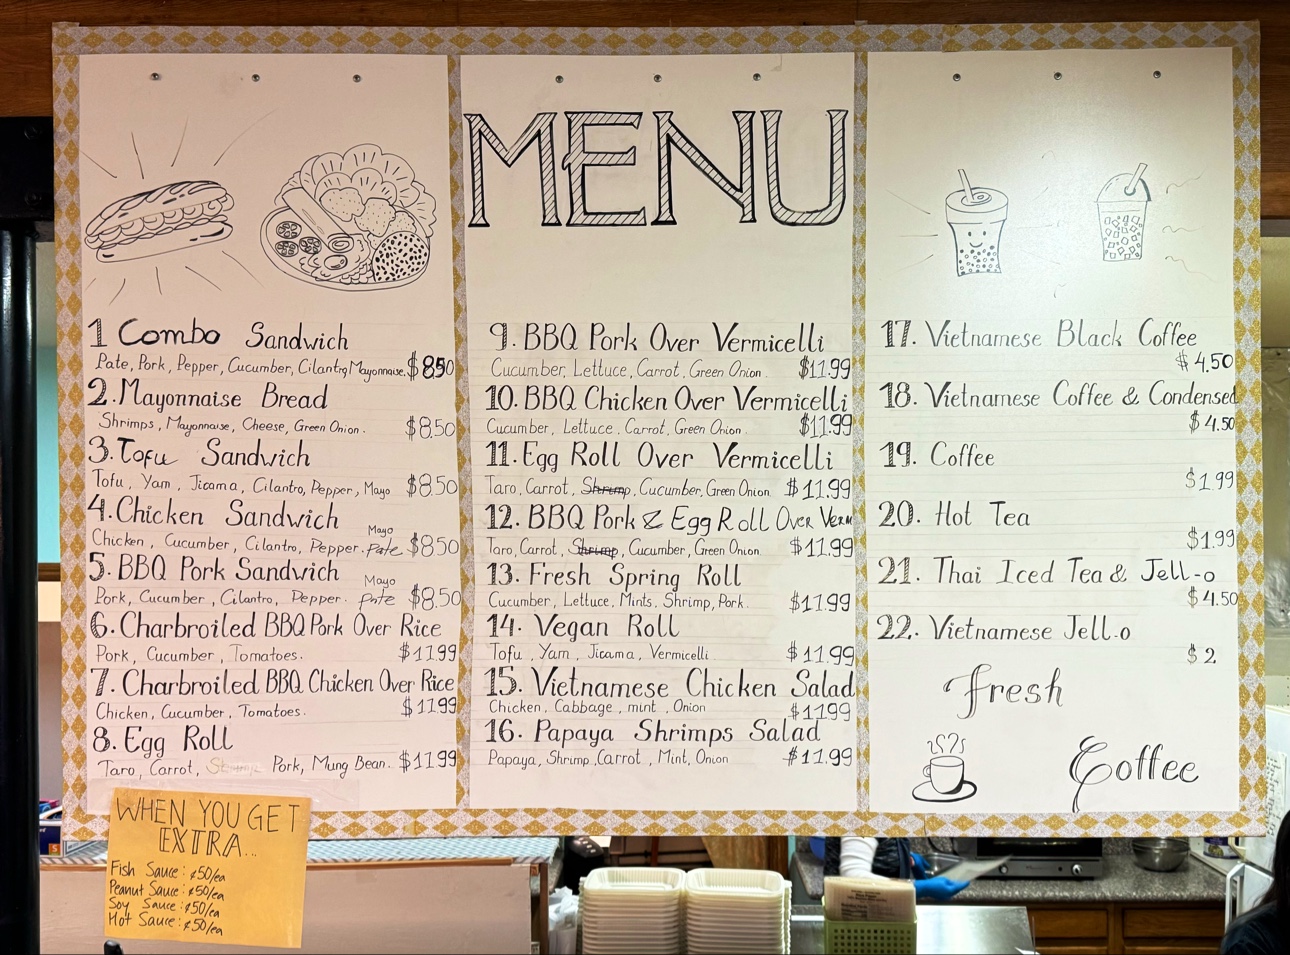 MENU
1 Combo Sandwich
Pate, Pork, Pepper, Cucumber, Cilantro, Mayonnaise. $8.50
2. Mayonnaise Bread
Shrimps, Mayonnaise, Cheese, Green Onion. $8.50
3. Tofu Sandwich
Tofu, Yam, Jicama, Cilantro, Pepper, Mayo $8.50
4. Chicken Sandwich
Mayo
Chicken, Cucumber, Cilantro, Pepper. Pate $8.50
5. BBQ Pork Sandwich
Mayo
Pork, Cucumber, Cilantro, Pepper. Pate $8.50
6. Charbroiled BBQ Pork Over Rice
Pork, Cucumber, Tomatoes. $11.99
7. Charbroiled BBQ Chicken Over Rice
Chicken, Cucumber, Tomatoes. $11.99
8. Egg Roll
Taro, Carrot, Pork, Mung Bean. $11.99
9. BBQ Pork Over Vermicelli
Cucumber, Lettuce, Carrot, Green Onion. $11.99
10. BBQ Chicken Over Vermicelli
Cucumber, Lettuce, Carrot, Green Onion. $11.99
11. Egg Roll Over Vermicelli
Taro, Carrot, Shrimp, Cucumber, Green Onion $11.99
12. BBQ Pork & Egg Roll Over Verm
Taro, Carrot, Shrimp, Cucumber, Green Onion $11.99
13. Fresh Spring Roll
Cucumber, Lettuce, Mints, Shrimp, Pork. $11.99
14. Vegan Roll
Tofu, Yam, Jicama, Vermicelli $11.99
15. Vietnamese Chicken Salad
Chicken, Cabbage, mint, Onion $11.99
16. Papaya Shrimps Salad
Papaya, Shrimp, Carrot, Mint, Onion $11.99
17. Vietnamese Black Coffee
$4.50
18. Vietnamese Coffee & Condensed
$4.50
19. Coffee
$1.99
20. Hot Tea
$1.99
21. Thai Iced Tea & Jell-o
$4.50
22. Vietnamese Jell-o
$2
fresh
Coffee
WHEN YOU GET
EXTRA...
Fish Sauce: ¢50/ea
Peanut Sauce: ¢50/ea
Soy Sauce: ¢50/ea
Hot Sauce: ¢50/ea